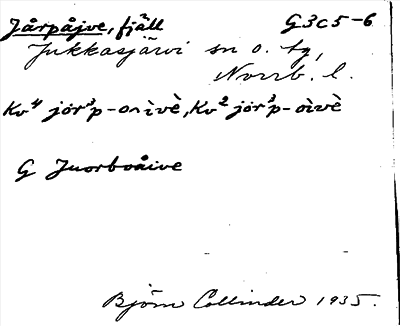 Jårpåjve, fjäll G3c5-6
Jukkasjärvi sn o. tg,
Norrb. l.
Kv⁴ jör³p-oìvè, Kv² jör³p-oìvè
G Juorboåive
Björn Collinder 1935.